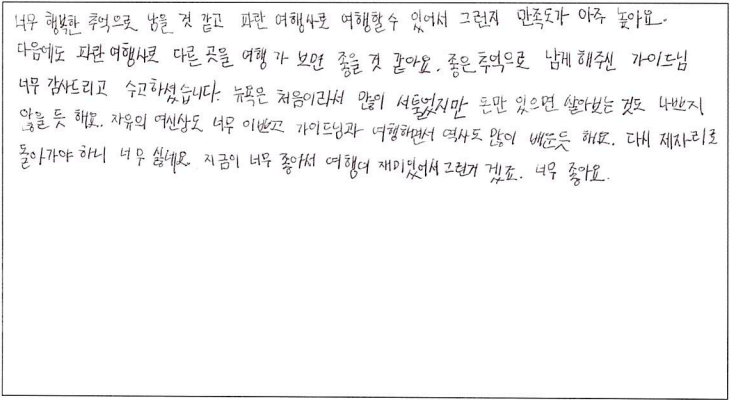 너무 행복한 추억으로 남을 것 같고 파란 여행사로 여행할 수 있어서 그런지 만족도가 아주 높아요.
다음에도 파란 여행사로 다른 곳을 여행 가 보면 좋을 것 같아요. 좋은 추억으로 남게 해주신 가이드님
너무 감사드리고 수고하셨습니다. 뉴욕은 처음이라서 많이 서툴었지만 돈만 있으면 살아보는 것도 나쁘지
않을 듯 해요. 자유의 여신상도 너무 이쁘고 가이드님과 여행하면서 역사도 많이 배운듯 해요. 다시 제자리로
돌아가야 하니 너무 싫네요. 지금이 너무 좋아서 여행이 재미있어서 그런거 겠죠. 너무 좋아요.